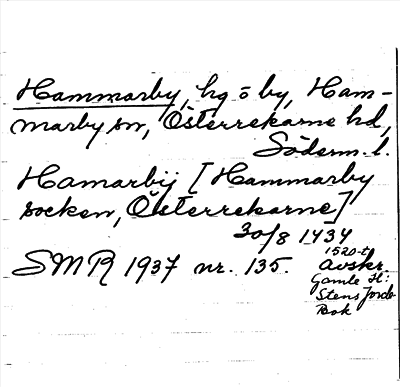 Hammarby, hg o by, Ham-
marby sn, Österrekarne hd,
Söderm. l.
Hamarbij [Hammarby
socken, Österrekarne]
30/8 1434
SMR 1937 nr. 135.
1520-t.
avskr.
Gamle H:
Stens Jorde
Bok